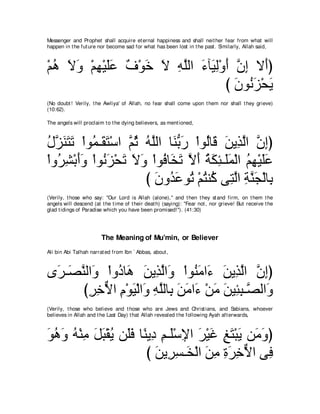 Messenger and Prophet shall acquire eternal happiness and shall neither fear from what will
happen in the future nor become sad for what has been lost in the past. Similarly, Allah said,
أَلا إِنَّ أَوْلِيَآءَ اللَّهِ لاَ خَوْفٌ عَلَيْهِمْ وَلاَ هُمْ
يَحْزَنُونَ )
(No doubt! Verily, the Awliya' of Allah, no fear shall come upon them nor shall they grieve)
(10:62).
The angels will proclaim to the dying believers, as mentioned,
(إِنَّ الَّذِينَ قَالُواْ رَبُّنَا اللَّهُ ثُمَّ اسْتَقَـمُواْ تَتَنَزَّلُ
عَلَيْهِمُ الْمَلَـئِكَةُ أَلاَّ تَخَافُواْ وَلاَ تَحْزَنُواْ وَأَبْشِرُواْ
بِالْجَنَّةِ الَّتِى كُنتُمْ تُوعَدُونَ )
(Verily, those who say: "Our Lord is Allah (alone),'' and then they stand firm, on them the
angels will descend (at the time of their death) (saying): "Fear not, nor grieve! But receive the
glad tidings of Paradise which you have been promised!''). (41:30)
The Meaning of Mu'min, or Believer
Ali bin Abi Talhah narrated from Ibn `Abbas, about,
(إِنَّ الَّذِينَ ءَامَنُواْ وَالَّذِينَ هَادُواْ وَالنَّصَـرَى
وَالصَّـبِئِينَ مَنْ ءَامَنَ بِاللَّهِ وَالْيَوْمِ الاٌّخِرِ)
(Verily, those who believe and those who are Jews and Christians, and Sabians, whoever
believes in Allah and the Last Day) that Allah revealed the following Ayah afterwards,
(وَمَن يَبْتَغِ غَيْرَ الإِسْلَـمِ دِينًا فَلَن يُقْبَلَ مِنْهُ وَهُوَ
فِى الاٌّخِرَةِ مِنَ الْخَـسِرِينَ )